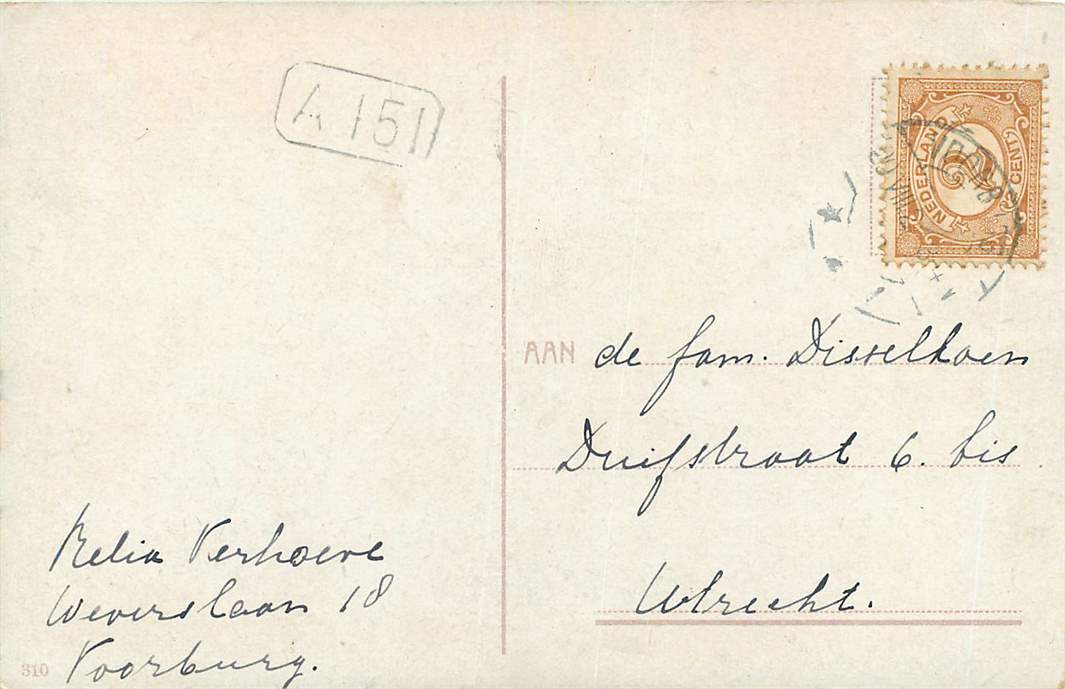 A 151
NEDERLAND
2 CENT
AAN de fam. Disselkoen
Duifstraat 6. bis
Utrecht.
Relia Verhoeve
Weverslaan 18
Voorburg.
310